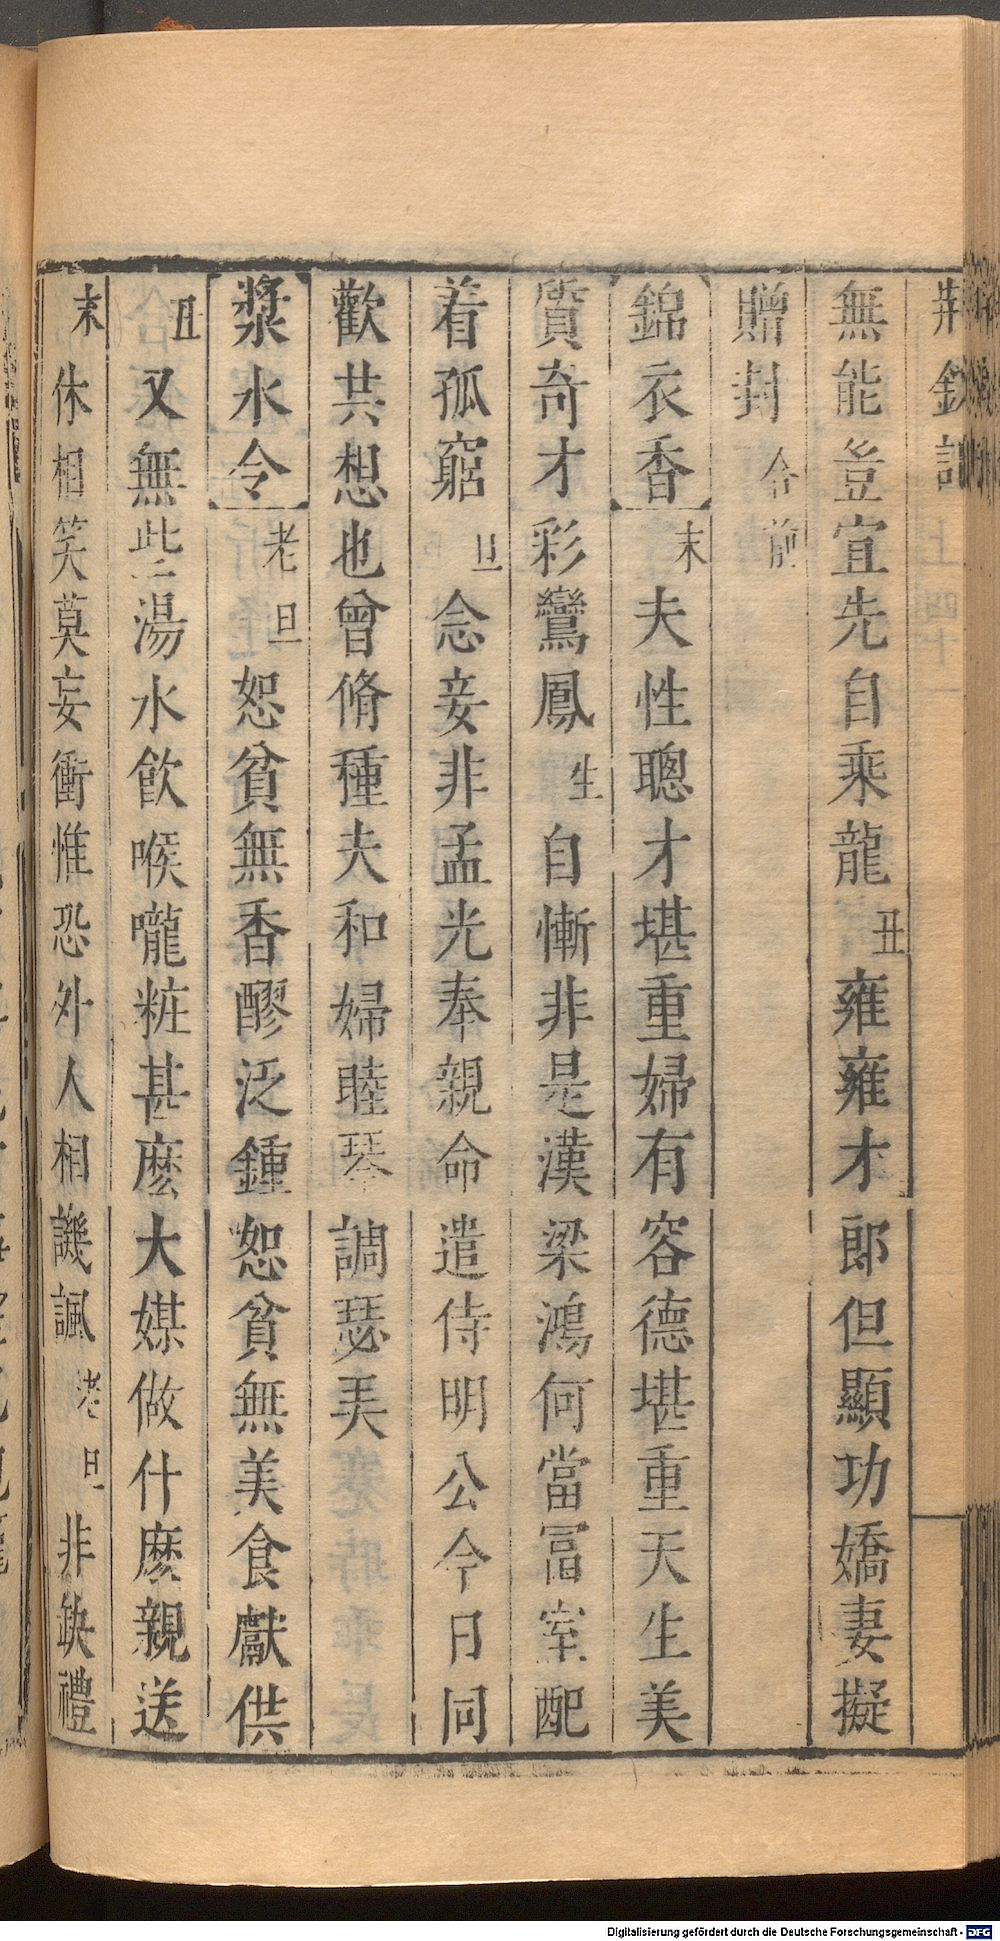 荆釵記
無能豈宜先自乘龍丑雍雍才郎但顯功嬌妻擬
贈封合前
錦衣香末夫性聰才堪重婦有容德堪重天生美
質奇才彩鸞鳳生自慚非是漢梁鴻何當冨室配
着孤窮旦念妾非孟光奉親命遣侍明公今日同
歡共想也曾脩種夫和婦睦琴調瑟弄
漿水令老旦恕貧無香醪泛鍾恕貧無美食獻供
丑又無些湯水飲喉嚨粧甚麽大媒做什麽親送
末休相笑莫妄衝惟恐外人相譏諷老旦非缺禮
Digitalisierung gefördert durch die Deutsche Forschungsgemeinschaft - DFG